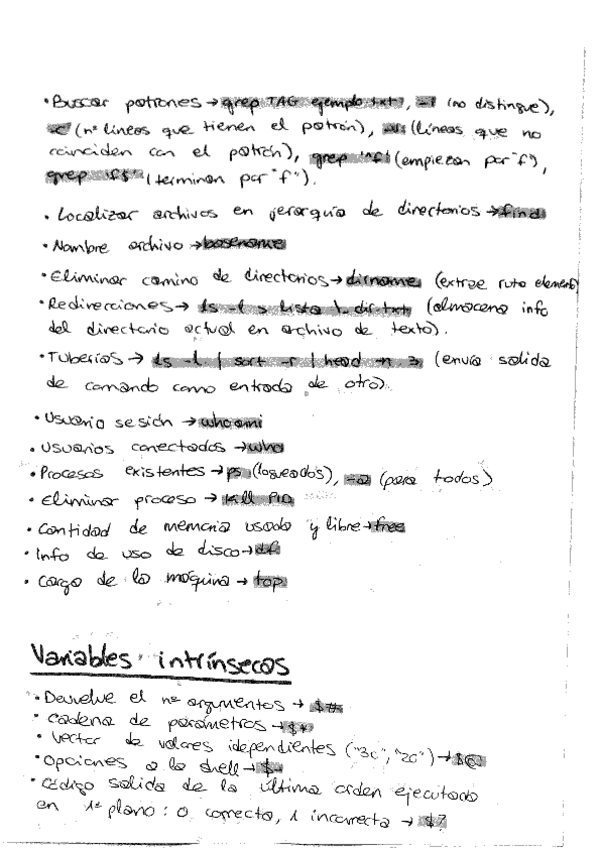 • Buscar patrones → grep TAG ejemplo.txt, -i (no distingue),
-c (nº líneas que tienen el patrón), (líneas que no
coinciden con el patrón), grep "^f" (empiezan por "f"),
grep "f$" (terminan por "f").
• Localizar archivos en jerarquía de directorios → find
• Nombre archivo → basename
• Eliminar camino de directorios → dirname (extrae ruta elemento)
• Redirecciones → ls -l > lista_dir.txt (almacena info
del directorio actual en archivo de texto).
• Tuberías → ls -l | sort -r | head -n 3 (envía salida
de comando como entrada de otro).
• Usuario sesión → whoami
• Usuarios conectados → who
• Procesos existentes → ps (logueados), -a (para todos)
• Eliminar proceso → kill PID
• Cantidad de memoria usada y libre → free
• Info de uso de disco → df
• Carga de la máquina → top
Variables intrínsecas
• Devuelve el nº argumentos → $#
• Cadena de parámetros → $*
• Vector de valores idependientes ("3c", "2c") → $@
• Opciones a la shell → $-
• Código salida de la última orden ejecutada
en 1º plano: 0 correcta, 1 incorrecta → $?